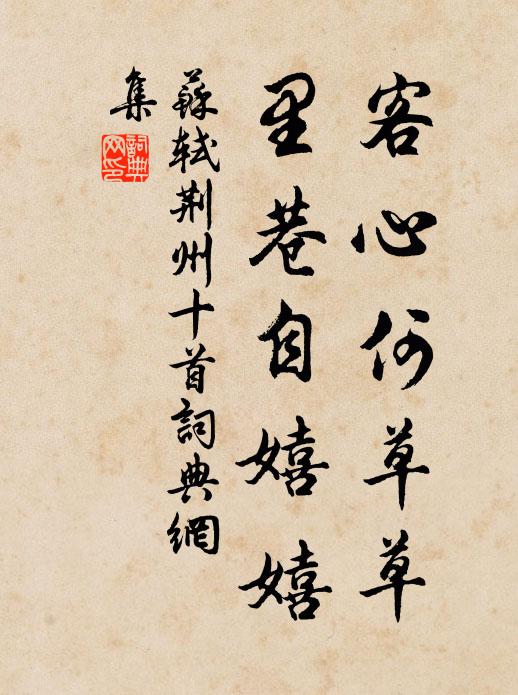 客心何草草
里巷自嬉嬉
蘇軾荆州十首詞典網
集
詞典
網印